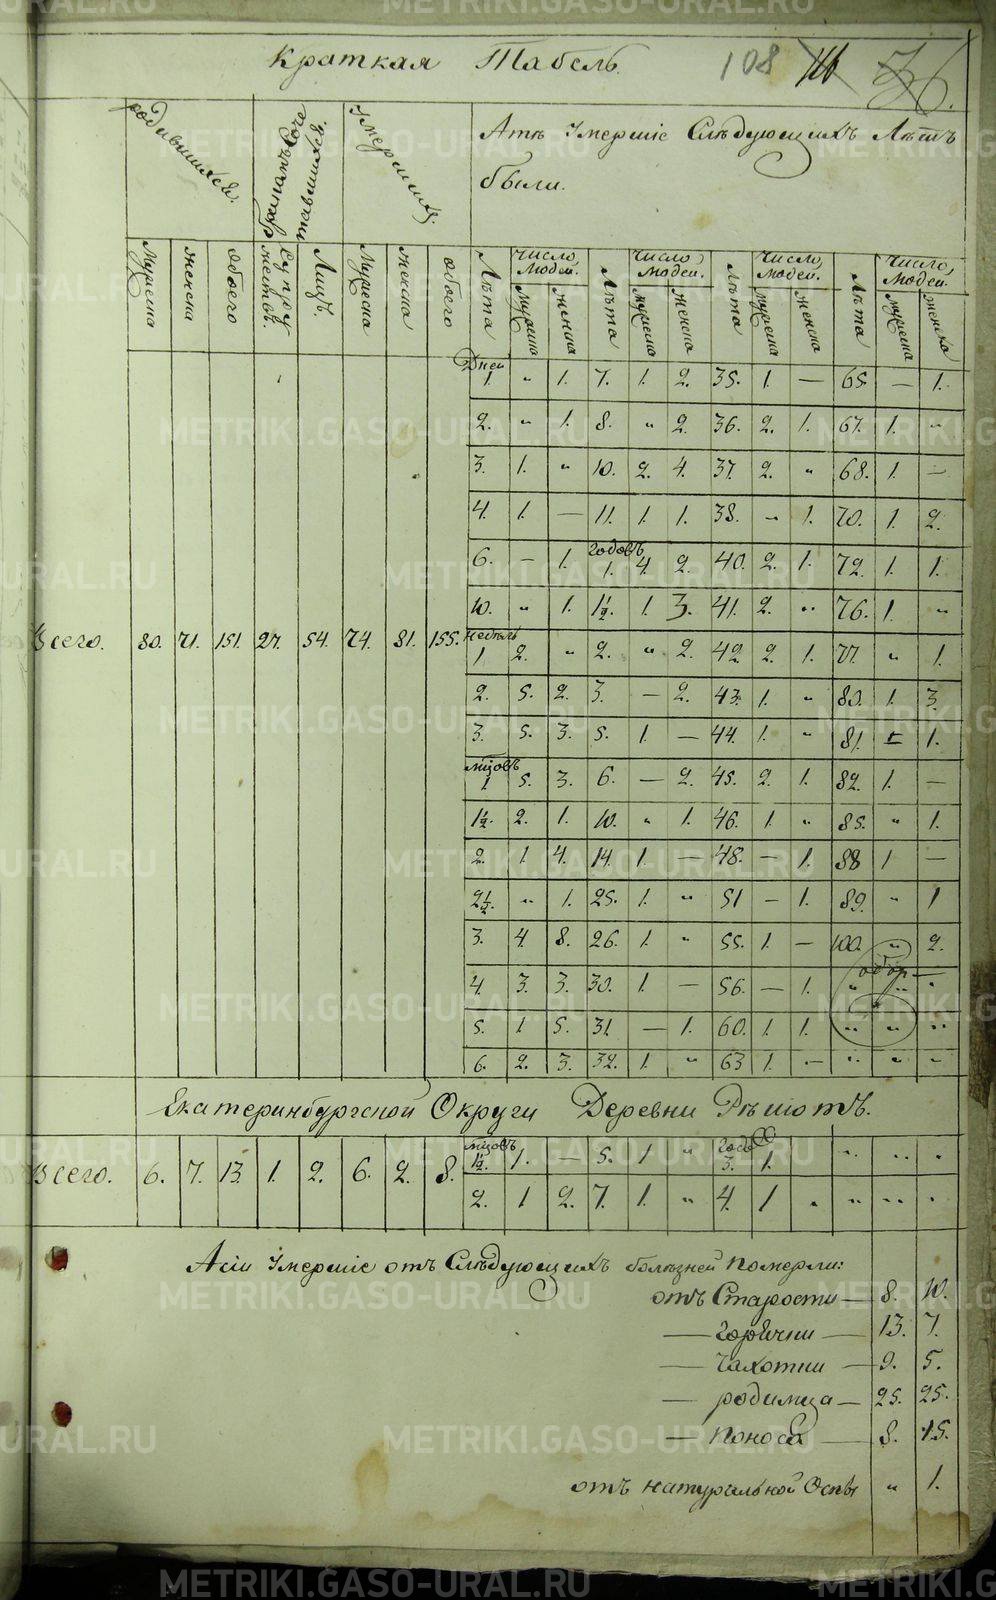 Краткая Табель. 108
родившихся.
бракомъ Соче
тавшихся.
Умершихъ.
Атѣ Умершіе Слѣдующихъ Лѣтъ
были.
Мужеска Женска Обоего Супру
жествъ. Лицъ. Мужеска Женска обоего Лѣта Число людей. Мужеска Женска Лѣта Число людей. Мужеска Женска Лѣта Число людей. Мужеска Женска Лѣта Число людей. Мужеска Женска
Дней
1. " 1. 7. 1. 2. 35. 1. — 65. — 1.
2. " 1. 8. " 2. 36. 2. 1. 67. 1. "
3. 1. " 10. 2. 4. 37. 2. " 68. 1. —
4. 1. — 11. 1. 1. 38. " 1. 70. 1. 2.
годовъ
6. — 1. 1. 4. 2. 40. 2. 1. 72. 1. 1.
10. " 1. 1½. 1. 3. 41. 2. " 76. 1. "
Всего. 80. 71. 151. 27. 54. 74. 81. 155.
недѣль
1 2. " 2. " 2. 42. 2. 1. 77. " 1.
2. 5. 2. 3. — 2. 43. 1. " 80. 1. 3.
3. 5. 3. 5. 1. — 44. 1. " 81. 1.
мцовъ
1 5. 3. 6. — 2. 45. 2. 1. 82. 1. —
1½. 2. 1. 10. " 1. 46. 1. " 85. " 1.
2. 1 4. 14. 1. — 48. — 1. 88 1 —
2½ " 1. 25. 1. " 51 — 1. 89. " 1
3. 4. 8. 26. 1. " 55. 1. — 100. " 2.
обор
4. 3. 3. 30. 1. — 56. — 1. " " "
5. 1 5. 31. — 1. 60. 1. 1. " " "
6. 2. 3. 32. 1. " 63 1. — " " "
Екатеринбургской Округи Деревни Рѣшотъ.
Всего. 6. 7. 13. 1. 2. 6. 2. 8.
мцовъ
1½. 1. — 5. 1 "
годъ
3. 1. " " "
2. 1 2. 7. 1. " 4. 1 " " " "
Асіи Умершіе отъ Слѣдующихъ болѣзней померли:
отъ Старости — 8. 10.
— Горячки — 13. 7.
— Чахотки — 9. 5.
— родимца — 25. 25.
— Поноса — 8. 15.
отъ натуральной Оспы " 1.
METRIKI.GASO-URAL.RU